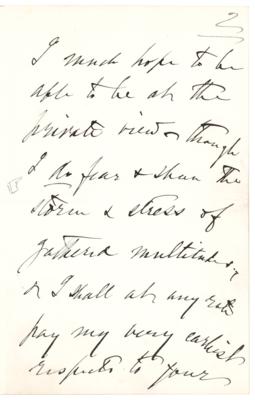 2
I much hope to be
able to be at the
private view, though
I do fear & shun the
storm & stress of
gathered multitudes,
or I shall at any rate
pay my very earliest
respects to your